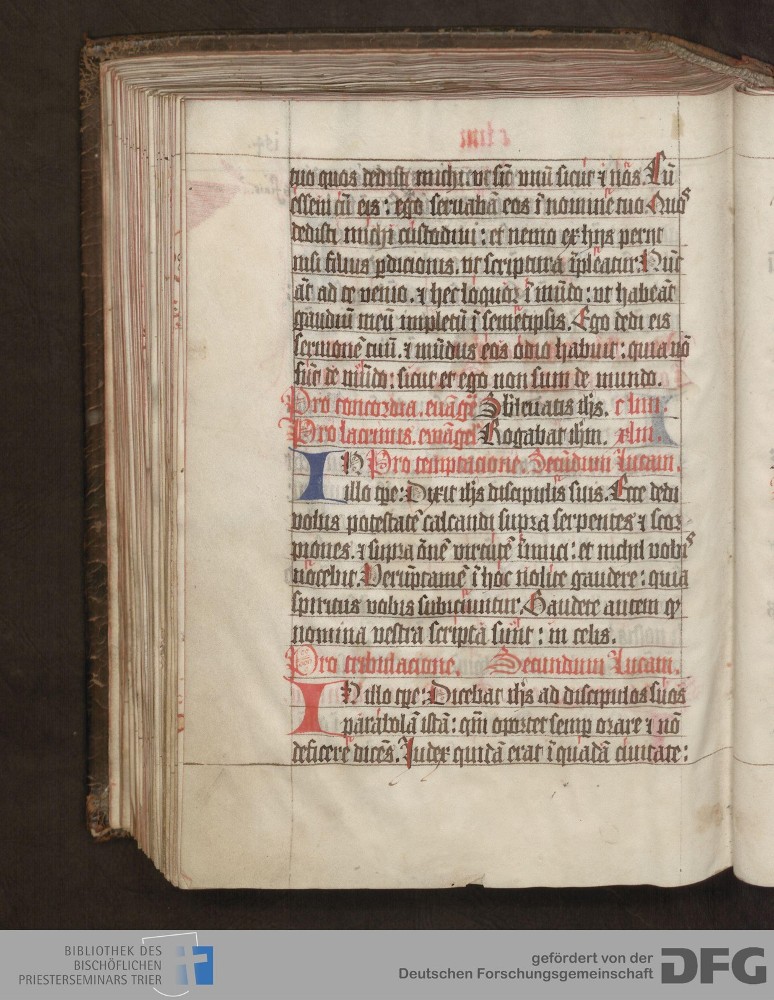 tuo quos dedisti michi: vt sīt vnū sicut ⁊ nōs. Cū
essem cū eis: ego seruabā eos ī nomine tuo. Quos
dedisti michi custodiui: et nemo ex hijs perijt
nisi filius ꝑdicionis. vt scriptura īpleatur. Nūc
āt ad te venio. ⁊ hec loquor ī mūdo: vt habeāt
gaudiū meū impletū ī semetipsis. Ego dedi eis
sermonē tuū. ⁊ mūdus eos odio habuit: quia nō
sūt de mūdo: sicut et ego non sum de mundo.
Pro concordia. euāgē Sbleuatis ihs.
Pro lacrimis. ewāgel Rogabat ihm. xlni.
IN Pro temptacione. Secūdum Lucam.
illo tꝑe: Dixit ihs discipulis suis. Ecce dedi
vobis potestatē calcandi supra serpentes ⁊ scor
piones. ⁊ supra ōnē virtutē inimici: et nichil vobis
nocebit. Verūptamē ī hoc nolite gaudere: quia
spiritus vobis subiciuntur. Gaudete autem ꝙ
nomina vestra scripta sunt: in celis.
Pro tribulacione. Secundum Lucam.
IN illo tꝑe: Dicebat ihs ad discipulos suos
parabolā istā: qm̄ oportet semꝑ orare ⁊ nō
deficere dicēs. Iudex quidā erat ī quadā ciuitate:
BIBLIOTHEK DES
BISCHÖFLICHEN
PRIESTERSEMINARS TRIER
gefördert von der
Deutschen Forschungsgemeinschaft
DFG